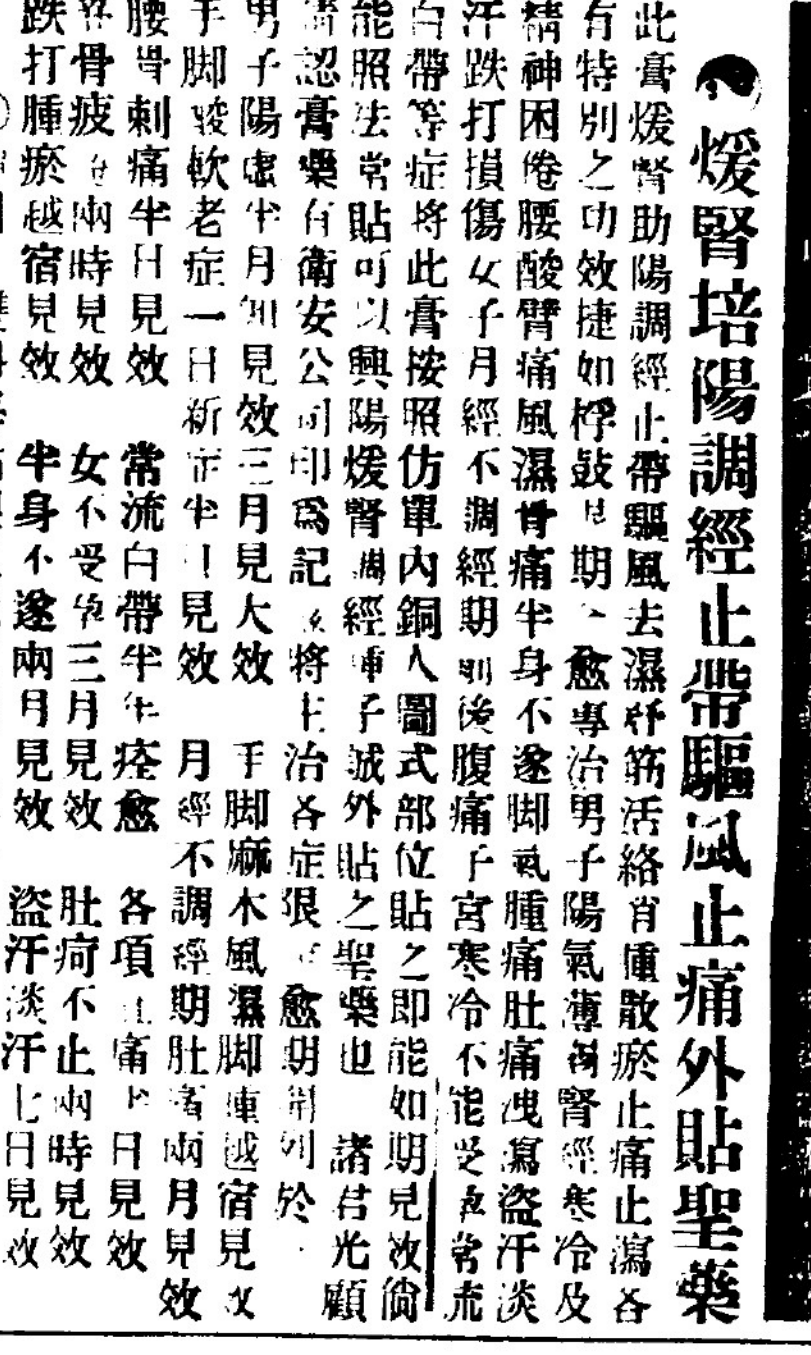 煖腎培陽調經止帶驅風止痛外貼聖藥
此膏煖腎助陽調經止帶驅風去濕舒筋活絡消腫散瘀止痛止瀉各
有特別之功效捷如桴鼓見期愈專治男子陽氣薄弱腎經寒冷及
精神困倦腰酸臂痛風濕骨痛半身不遂脚氣腫痛肚痛洩瀉盜汗淡
汗跌打損傷女子月經不調經期前後腹痛子宮寒冷不能受孕常流
白帶等症將此膏按照仿單內銅人圖式部位貼之即能如期見效倘
能照法常貼可以興陽煖腎調經種子誠外貼之聖藥也 諸君光顧
請認膏藥有衛安公司印爲記 將主治各症限愈期開列於
男子陽虛半月知見效三月見大效 手脚麻木風濕脚腫越宿見效
手脚酸軟老症一日新症半日見效 月經不調經期肚痛兩月見效
腰骨刺痛半日見效 常流白帶半年痊愈 各項痛日見效
骨疲兩時見效 女不受孕三月見效 肚疴不止兩時見效
跌打腫瘀越宿見效 半身不遂兩月見效 盜汗淡汗七日見效